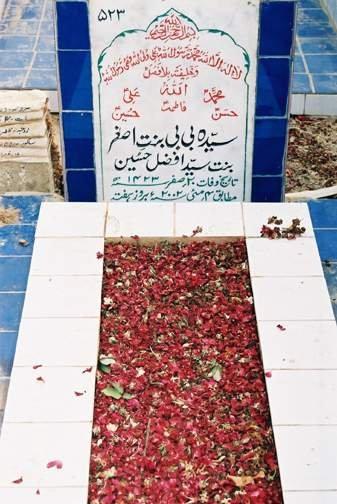 ۵۲۳
بسم الله الرحمن الرحيم
لا اله الا الله محمد رسول الله علی ولی الله وصی رسول الله
وخلیفتہ بلا فصل
محمدؐ اللہ علیؑ
حسنؑ فاطمہؑ حسینؑ
سیدہ بی بی بنت اصغر
بنت سید افضل حسین
تاریخ وفات ۲۰ صفر ۱۴۲۳ھ
مطابق ۴ مئی ۲۰۰۲ء بروز ہفتہ